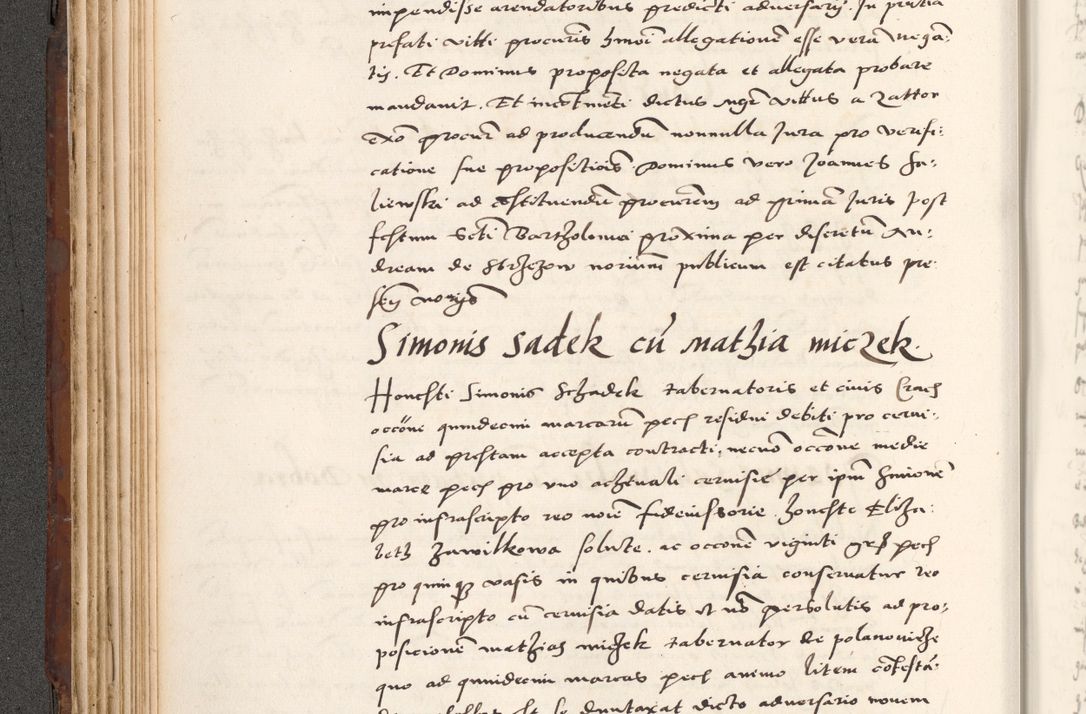 impendisse arendatoribus predicti adversarij. In pñtia
prefati vitti procuris hmoi allegationē esse verā negan:
tis. Et Dominus proposita negata et allegata probare
mandavit. Et incōtineti dictus mgr vittus a
procur ad producendū nonnulla Jura pro verifi:
catione sue propositiois Dominus vero Joannes Fa:
liewski ad cōstituendū procurem ad primā Juris post
festum Scti Bartholomei proxima per discretū An:
dream de Sbrzezow noriūm publicum est citatus pre:
sen
Simonis Sadek cū Mathia miczek.
Honesti Simonis Schadek tabernatoris et civis Crach
occōne quindecim marcarū pech residui debiti pro cervi:
sia ad prestam accepta contracti, necnō occōne medie
marce pech pro vno achtuali cervisie per ipm Simonē
pro infrascripto reo noīe fideiussorie. honeste Eliza:
beth Zawilkowa solute. ac occonē viginti grs pech
pro quinqz vasis in quibus cervisia conservatur reo
infrascripto cū cervisia datis et nō persolutis ad pro:
posicionē mathias miczek tabernator de polanowicze
quo ad quindecim marcas pech animo litem cōtestā:
se duntaxat dicto adversario novem